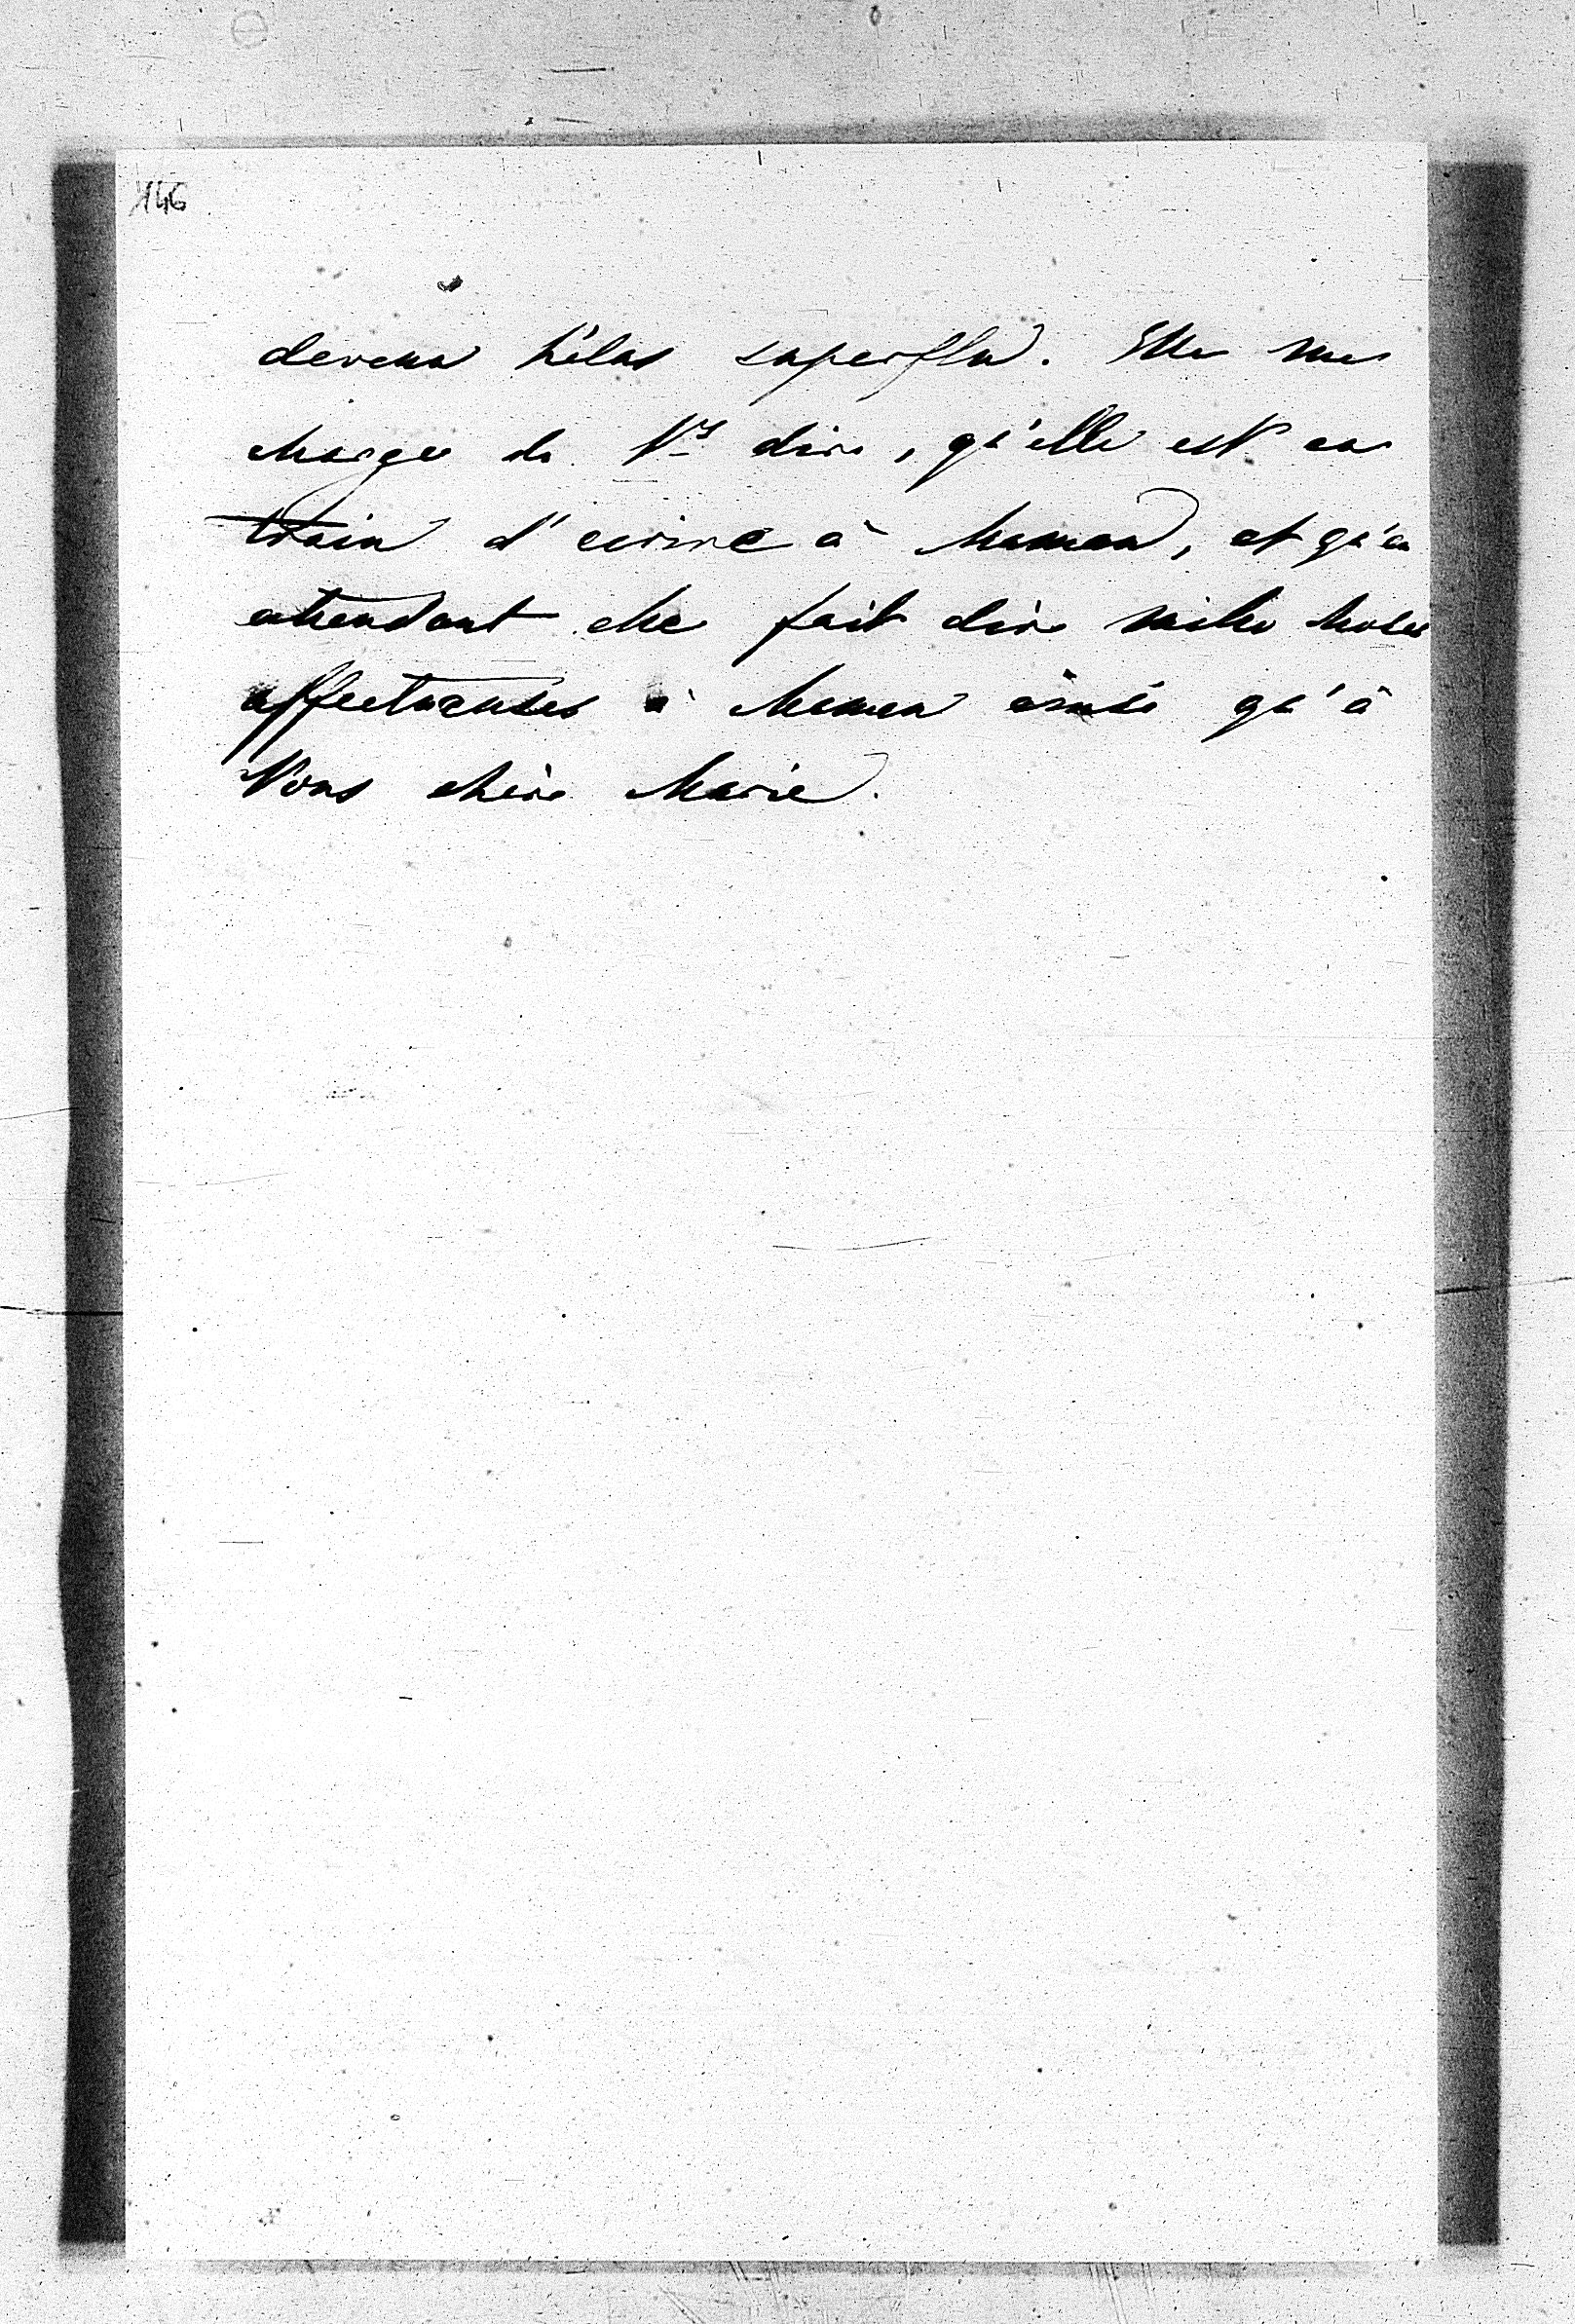 146
devenu hélas superflu. Elle me
charge de Vs dire, qu'elle est en
train d'ecrire à Maman, et qu'en
attendant elle fait dire mille choses
affectueuses à Maman ainsi qu'à
Vous chère Marie.